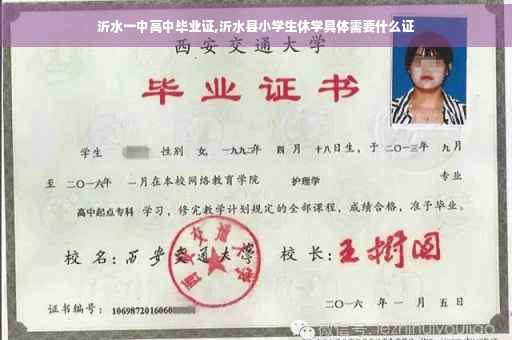 沂水一中高中毕业证,沂水县小学生休学具体需要什么证
西安交通大学
毕业证书
学生 性别 女, 一九九二年 四 月 十八日生, 于 二〇一三年 九月
至 二〇一六年 一月在本校网络教育学院 护理学 专业
高中起点专科 学习, 修完教学计划规定的全部课程, 成绩合格, 准予毕业。
校 名: 西安交通大学 校 长: 王树国
西安交通大学
证书编号: 1069872016060
二〇一六 年 一 月 五 日
微信号: jiezhinuiyoujiao